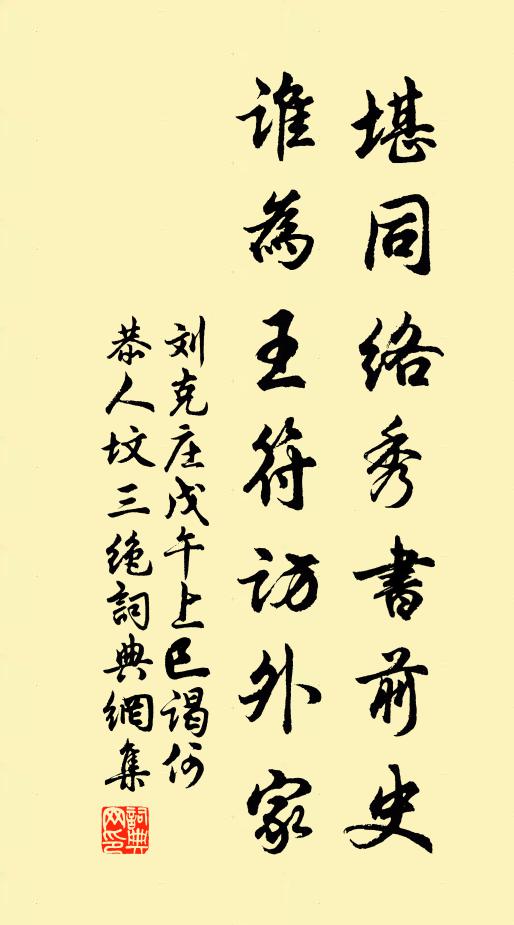 堪同络秀書前史
谁為王符访外家
刘克庄戊午上巳谒何
恭人坟三绝詞典網集
詞典网印